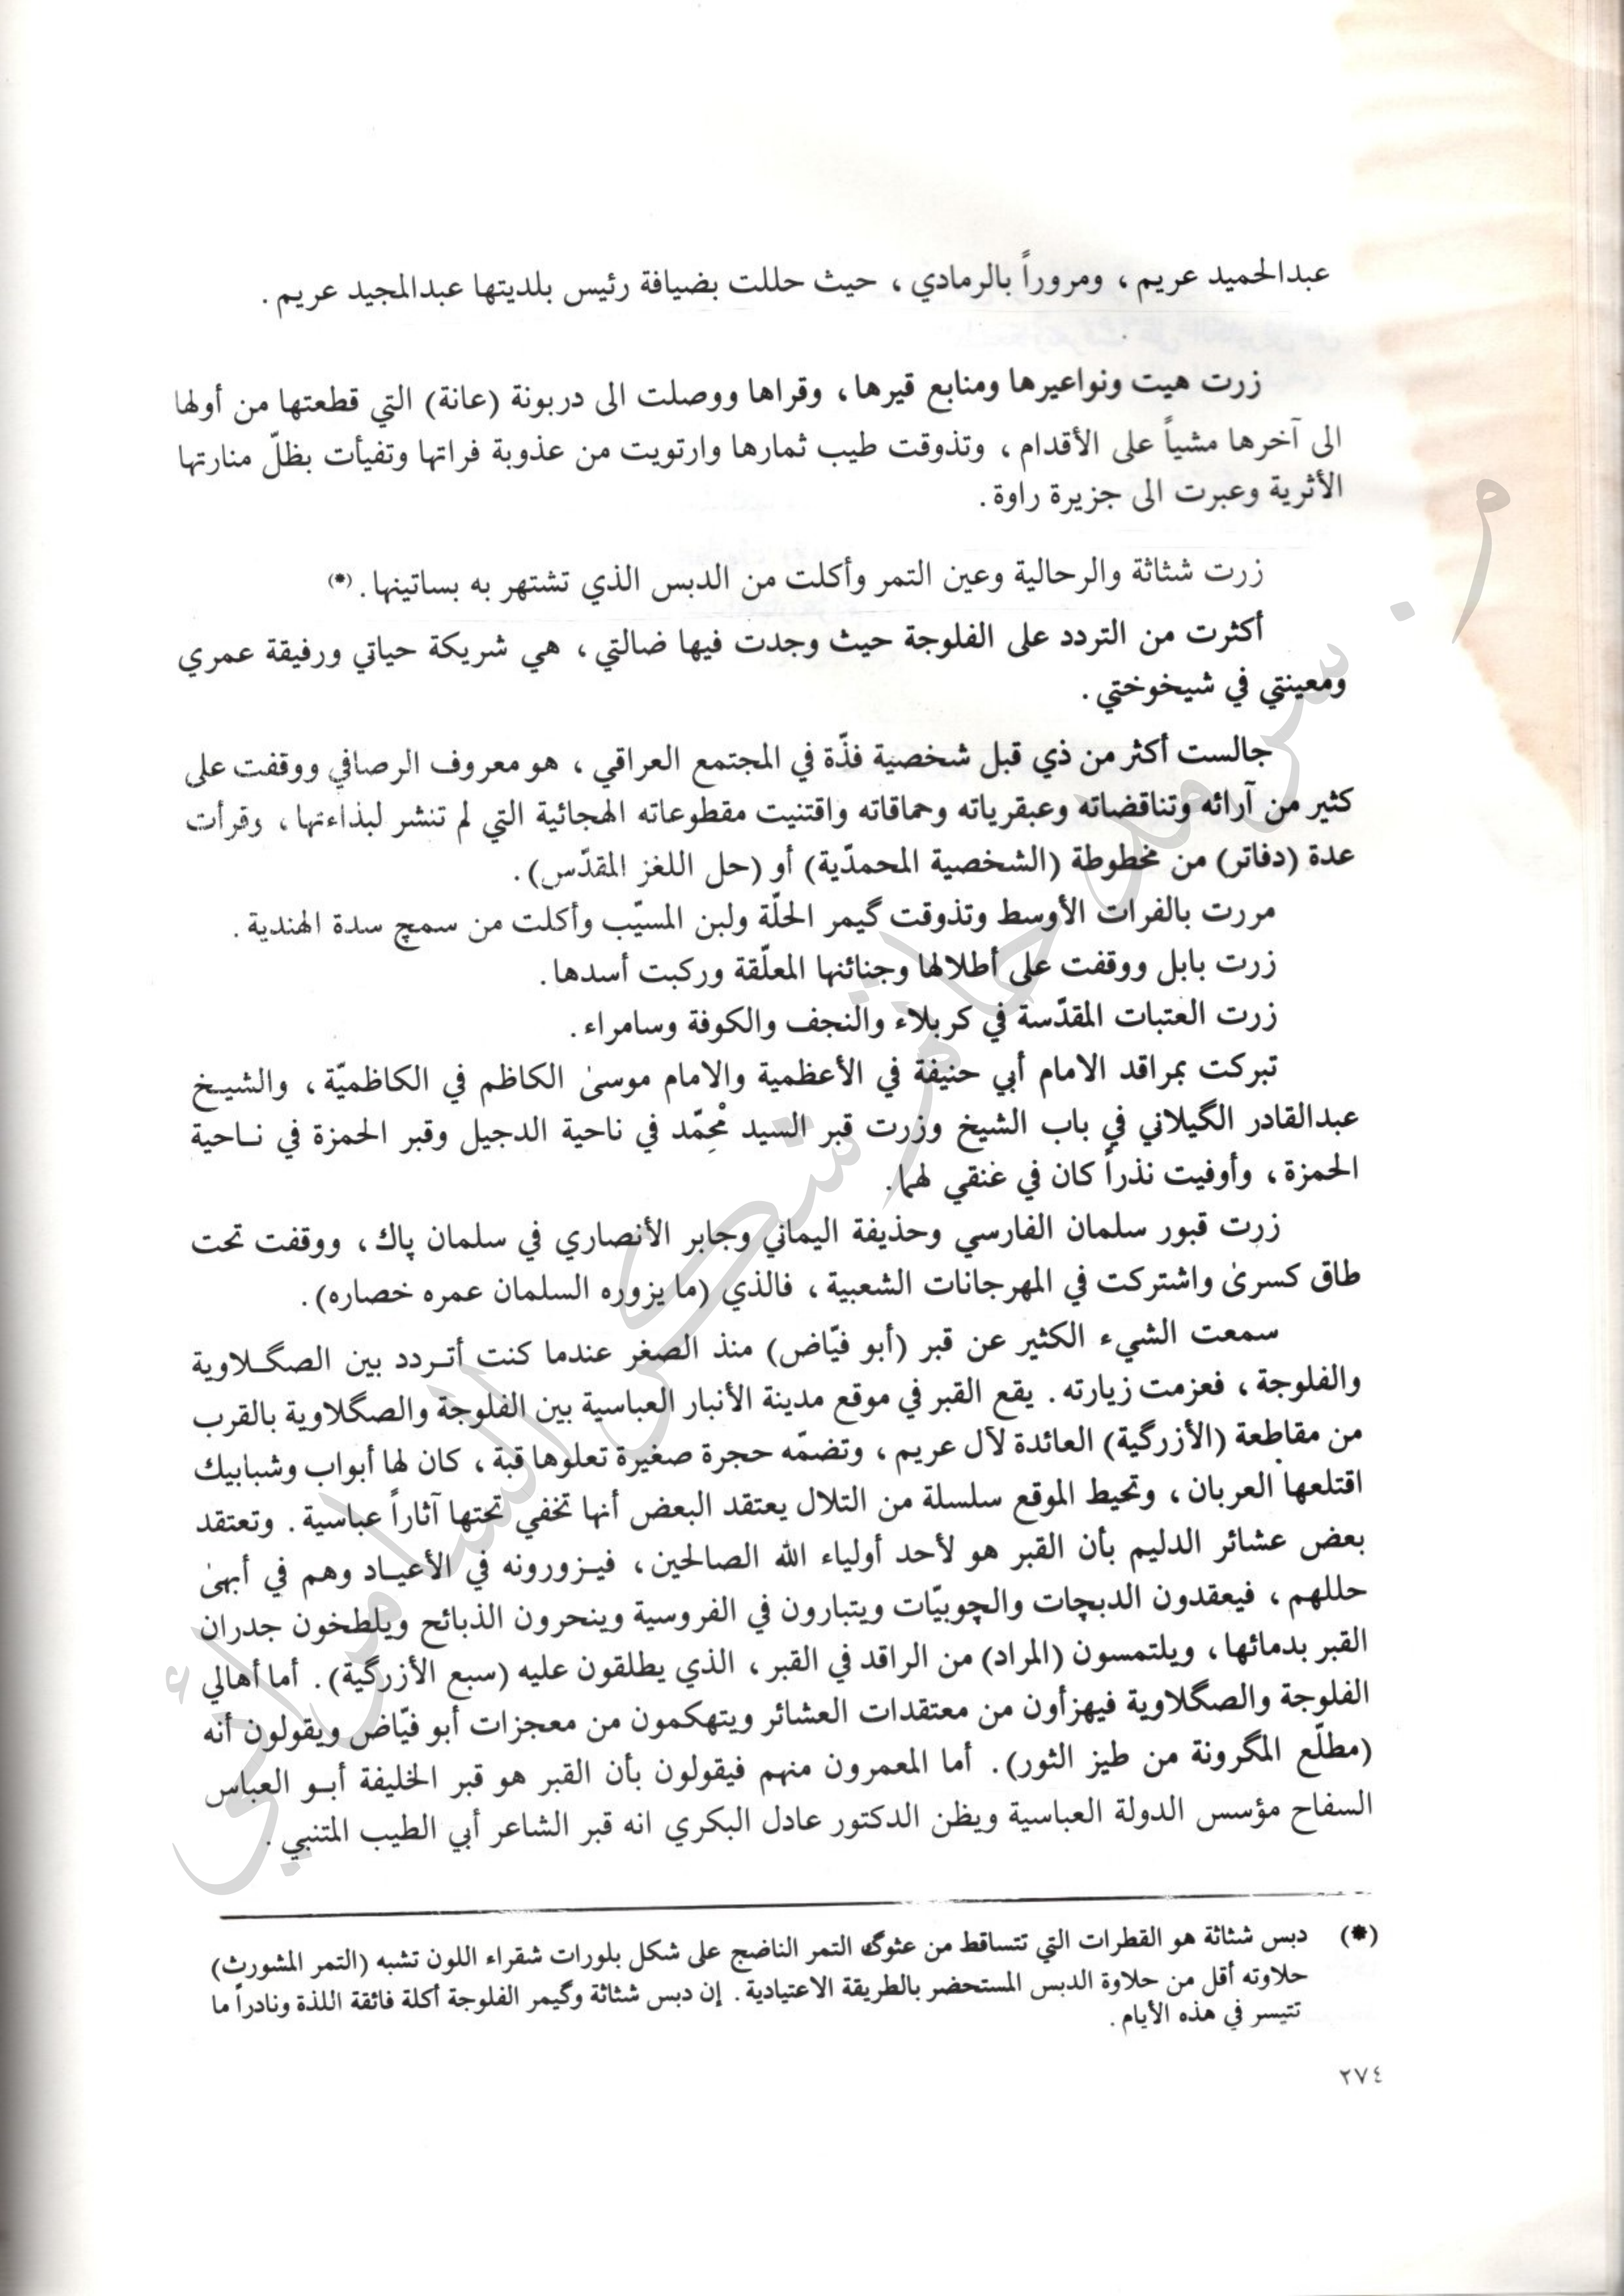 عبدالحميد عريم ، ومروراً بالرمادي ، حيث حللت بضيافة رئيس بلديتها عبدالمجيد عريم .
زرت هيت ونواعيرها ومنابع قيرها، وقراها ووصلت الى دربونة (عانة) التي قطعتها من أولها
الى آخرها مشياً على الأقدام ، وتذوقت طيب ثمارها وارتويت من عذوبة فراتها وتفيأت بظلّ منارتها
الأثرية وعبرت الى جزيرة راوة.
زرت شثاثة والرحالية وعين التمر وأكلت من الدبس الذي تشتهر به بساتينها. (*)
أكثرت من التردد على الفلوجة حيث وجدت فيها ضالتي ، هي شريكة حياتي ورفيقة عمري
ومعينتي في شيخوختي.
جالست أكثر من ذي قبل شخصية فذّة في المجتمع العراقي ، هو معروف الرصافي ووقفت على
كثير من آرائه وتناقضاته وعبقرياته وحماقاته واقتنيت مقطوعاته الهجائية التي لم تنشر لبذاءتها ، وقرأت
عدة (دفاتر) من مخطوطة (الشخصية المحمدّية) أو (حل اللغز المقدّس).
مررت بالفرات الأوسط وتذوقت گيمر الحلّة ولبن المسيّب وأكلت من سمچ سدة الهندية .
زرت بابل ووقفت على أطلالها وجنائنها المعلّقة وركبت أسدها.
زرت العتبات المقدّسة في كربلاء والنجف والكوفة وسامراء.
تبركت بمراقد الامام أبي حنيفة في الأعظمية والامام موسىٰ الكاظم في الكاظميّة ، والشيخ
عبدالقادر الگيلاني في باب الشيخ وزرت قبر السيد مْحِمّد في ناحية الدجيل وقبر الحمزة في ناحية
الحمزة ، وأوفيت نذراً كان في عنقي لهما.
زرت قبور سلمان الفارسي وحذيفة اليماني وجابر الأنصاري في سلمان پاك ، ووقفت تحت
طاق كسرىٰ واشتركت في المهرجانات الشعبية ، فالذي (ما يزوره السلمان عمره خصاره).
سمعت الشيء الكثير عن قبر (أبو فيّاض) منذ الصغر عندما كنت أتردد بين الصگلاوية
والفلوجة ، فعزمت زيارته. يقع القبر في موقع مدينة الأنبار العباسية بين الفلوجة والصگلاوية بالقرب
من مقاطعة (الأزرگية) العائدة لآل عريم ، وتضمّه حجرة صغيرة تعلوها قبة ، كان لها أبواب وشبابيك
اقتلعها العربان ، وتحيط الموقع سلسلة من التلال يعتقد البعض أنها تخفي تحتها آثاراً عباسية . وتعتقد
بعض عشائر الدليم بأن القبر هو لأحد أولياء الله الصالحين ، فيزورونه في الأعياد وهم في أبهىٰ
حللهم ، فيعقدون الدبچات والچوبيّات ويتبارون في الفروسية وينحرون الذبائح ويلطخون جدران
القبر بدمائها ، ويلتمسون (المراد) من الراقد في القبر ، الذي يطلقون عليه (سبع الأزرگية). أما أهالي
الفلوجة والصگلاوية فيهزأون من معتقدات العشائر ويتهكمون من معجزات أبو فيّاض ويقولون أنه
(مطلّع المگرونة من طيز الثور). أما المعمرون منهم فيقولون بأن القبر هو قبر الخليفة أبو العباس
السفاح مؤسس الدولة العباسية ويظن الدكتور عادل البكري انه قبر الشاعر أبي الطيب المتنبي .
(*) دبس شثاثة هو القطرات التي تتساقط من عثوگ التمر الناضج على شكل بلورات شقراء اللون تشبه (التمر المشورث)
حلاوته أقل من حلاوة الدبس المستحضر بالطريقة الاعتيادية . إن دبس شثاثة وگيمر الفلوجة أكلة فائقة اللذة ونادراً ما
تتيسر في هذه الأيام .
٢٧٤